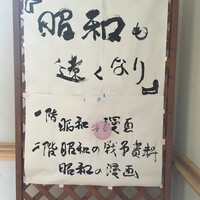 『昭和も
遠くなり』
一階 昭和の漫画
二階 昭和の戦争資料
昭和の漫画